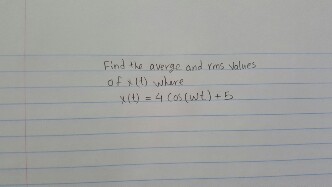 Find the averge and rms values
of x(t) where
x(t) = 4 Cos(wt) + 5